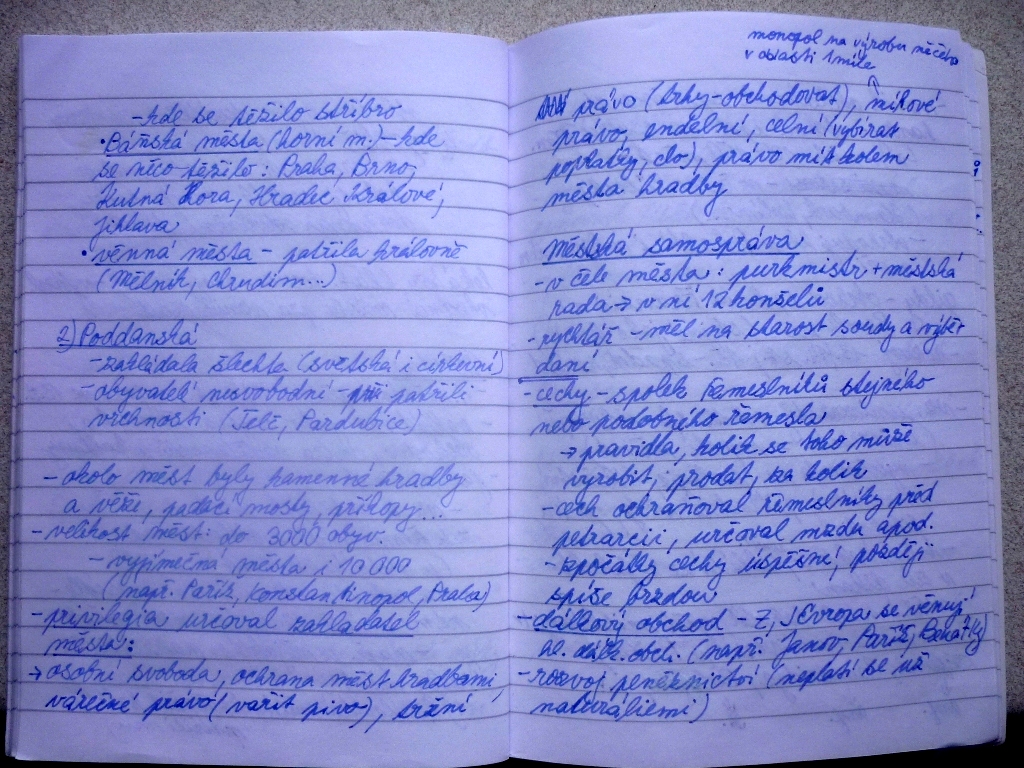 -kde se těžilo stříbro
•Báňská města (horní m.)-kde
se něco těžilo: Praha, Brno,
Kutná Hora, Hradec Králové,
Jihlava
•věnná města - patřila královně
(Mělník, Chrudim...)
2) Poddanská
-zakládala šlechta (světská i církevní)
-obyvatelé nesvobodní - patřili
vrchnosti (Telč, Pardubice)
- okolo měst byly kamenné hradby
a věže, padací mosty, příkopy...
-velikost měst: do 3000 obyv.
-výjimečná města i 10 000
(např. Paříž, Konstantinopol, Praha)
-privilegia určoval zakladatel
města:
→ osobní svoboda, ochrana měst hradbami,
várečné právo (vařit pivo), tržní
monopol na výrobu něčeho
v oblasti 1 míle
právo (trhy-obchodovat), mílové
právo, hrdelní, celní (vybírat
poplatky, clo), právo mít kolem
města hradby
Městská samospráva
-v čele města: purkmistr + městská
rada → v ní 12 konšelů
-rychtář - měl na starost soudy a výběr
daní
-cechy - spolek řemeslníků stejného
nebo podobného řemesla
→ pravidla, kolik se toho může
vyrobit, prodat, za kolik
-cech ochraňoval řemeslníky před
, určoval mzdu apod.
-zpočátky cechy úspěšné, později
spíše brzdou
-dálkový obchod - Z, J Evropa se věnují
dálk. obch. (např. Janov, Paříž, Benátky)
-rozvoj peněžnictví (neplatí se už
naturáliemi)